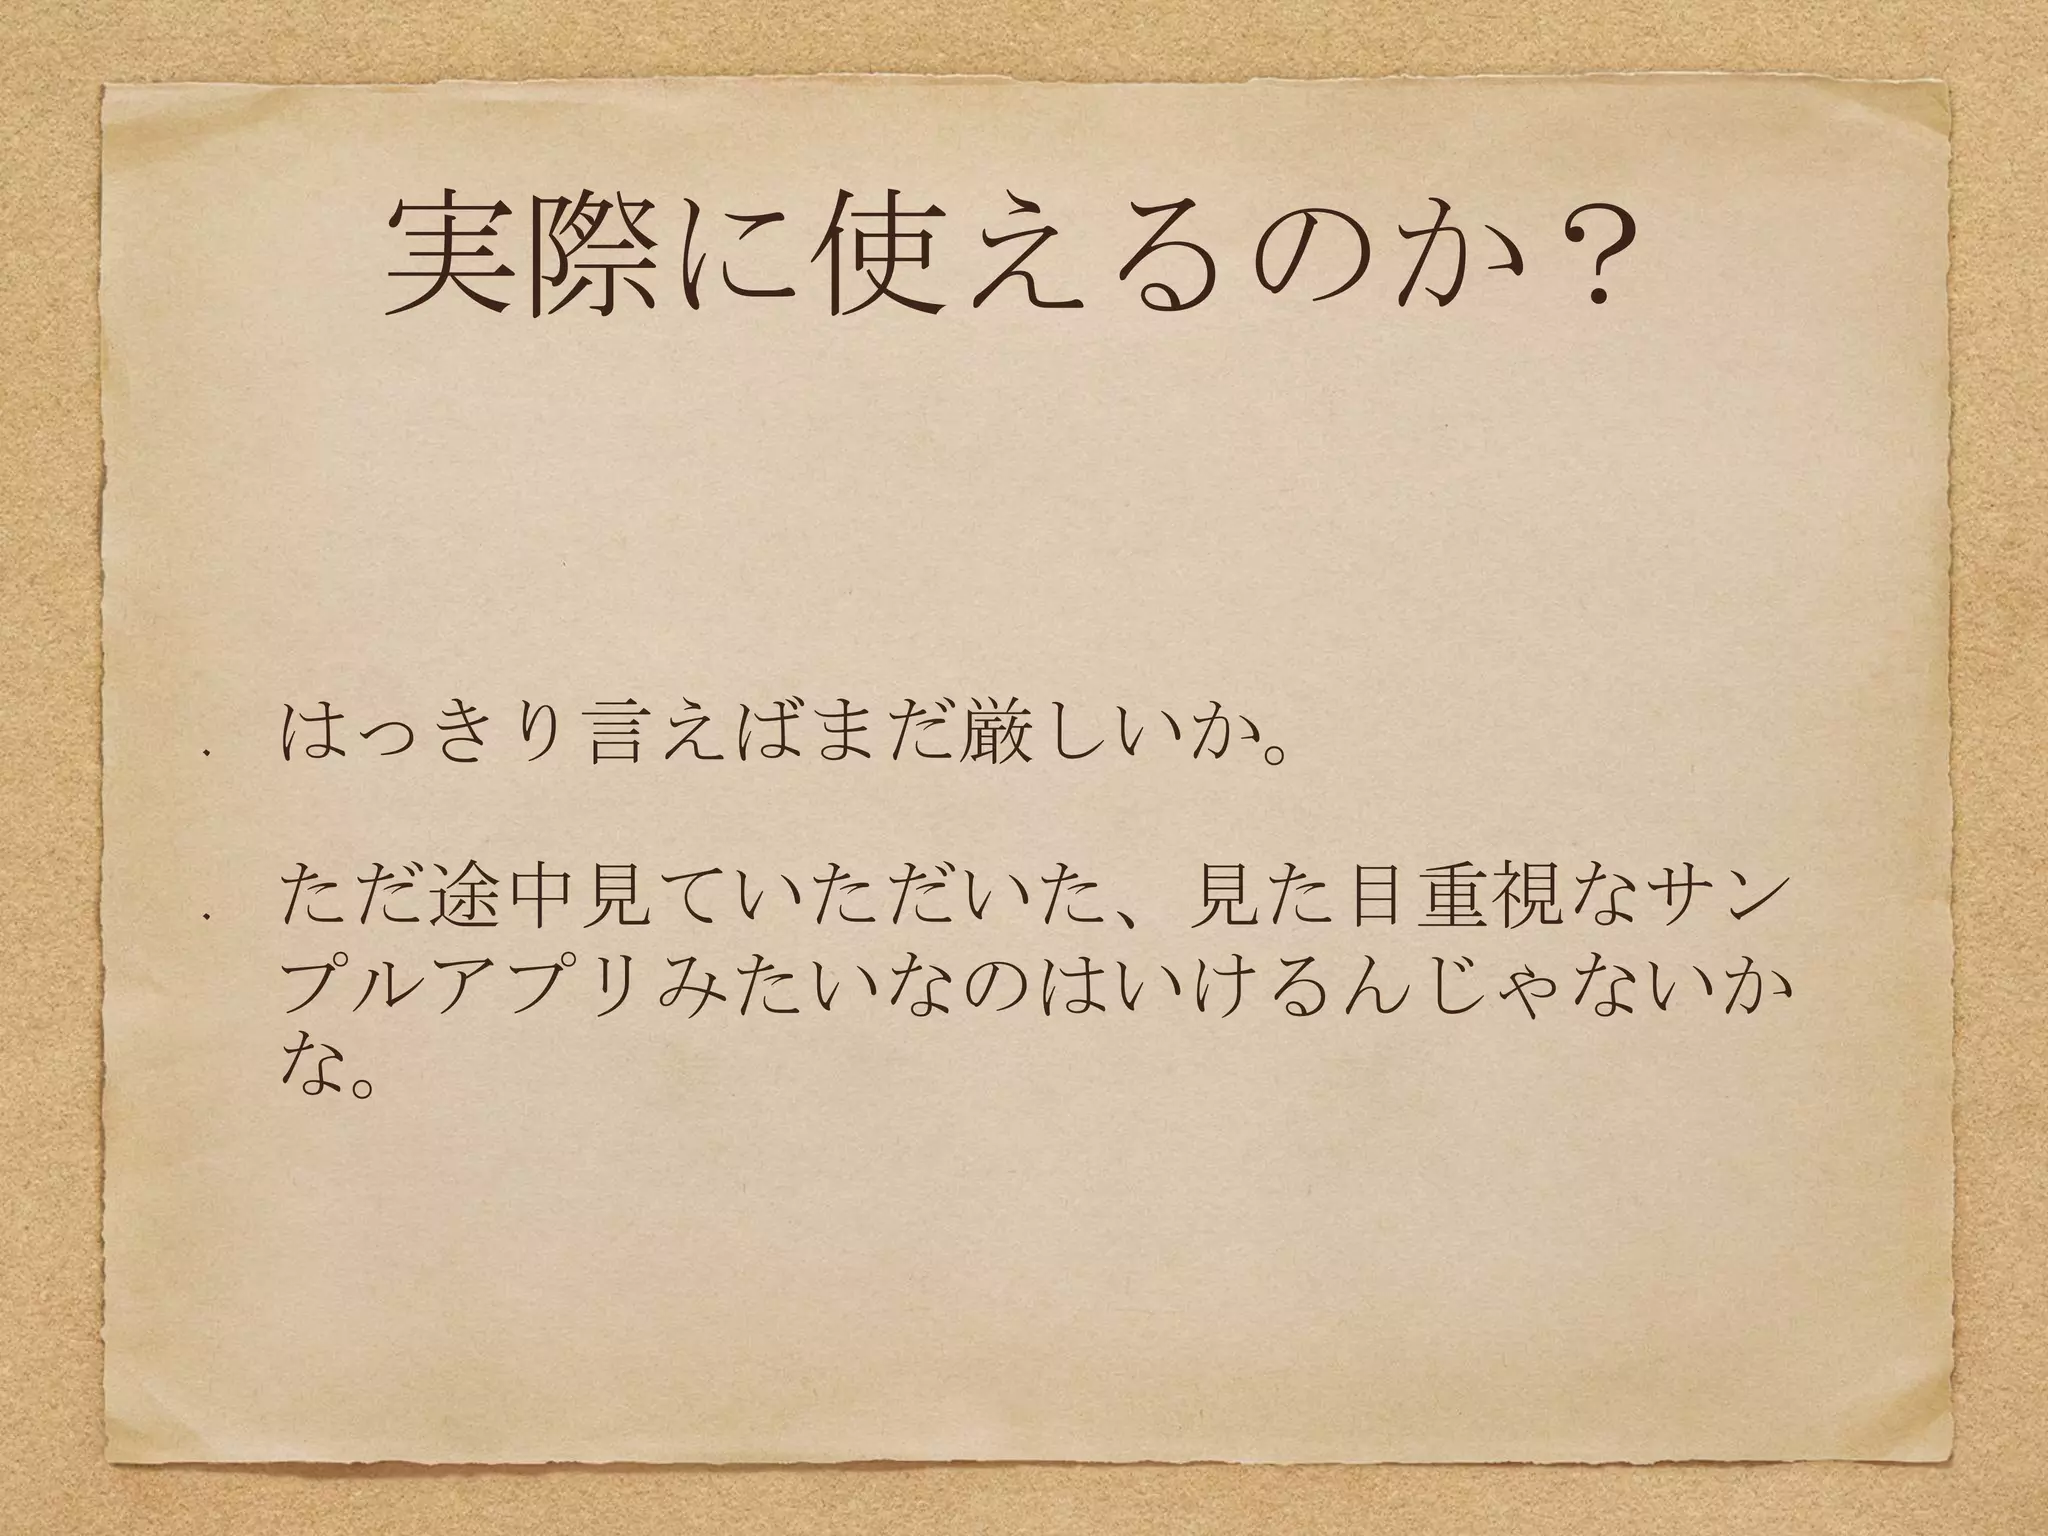 実際に使えるのか？
・ はっきり言えばまだ厳しいか。
・ ただ途中見ていただいた、見た目重視なサン
プルアプリみたいなのはいけるんじゃないか
な。